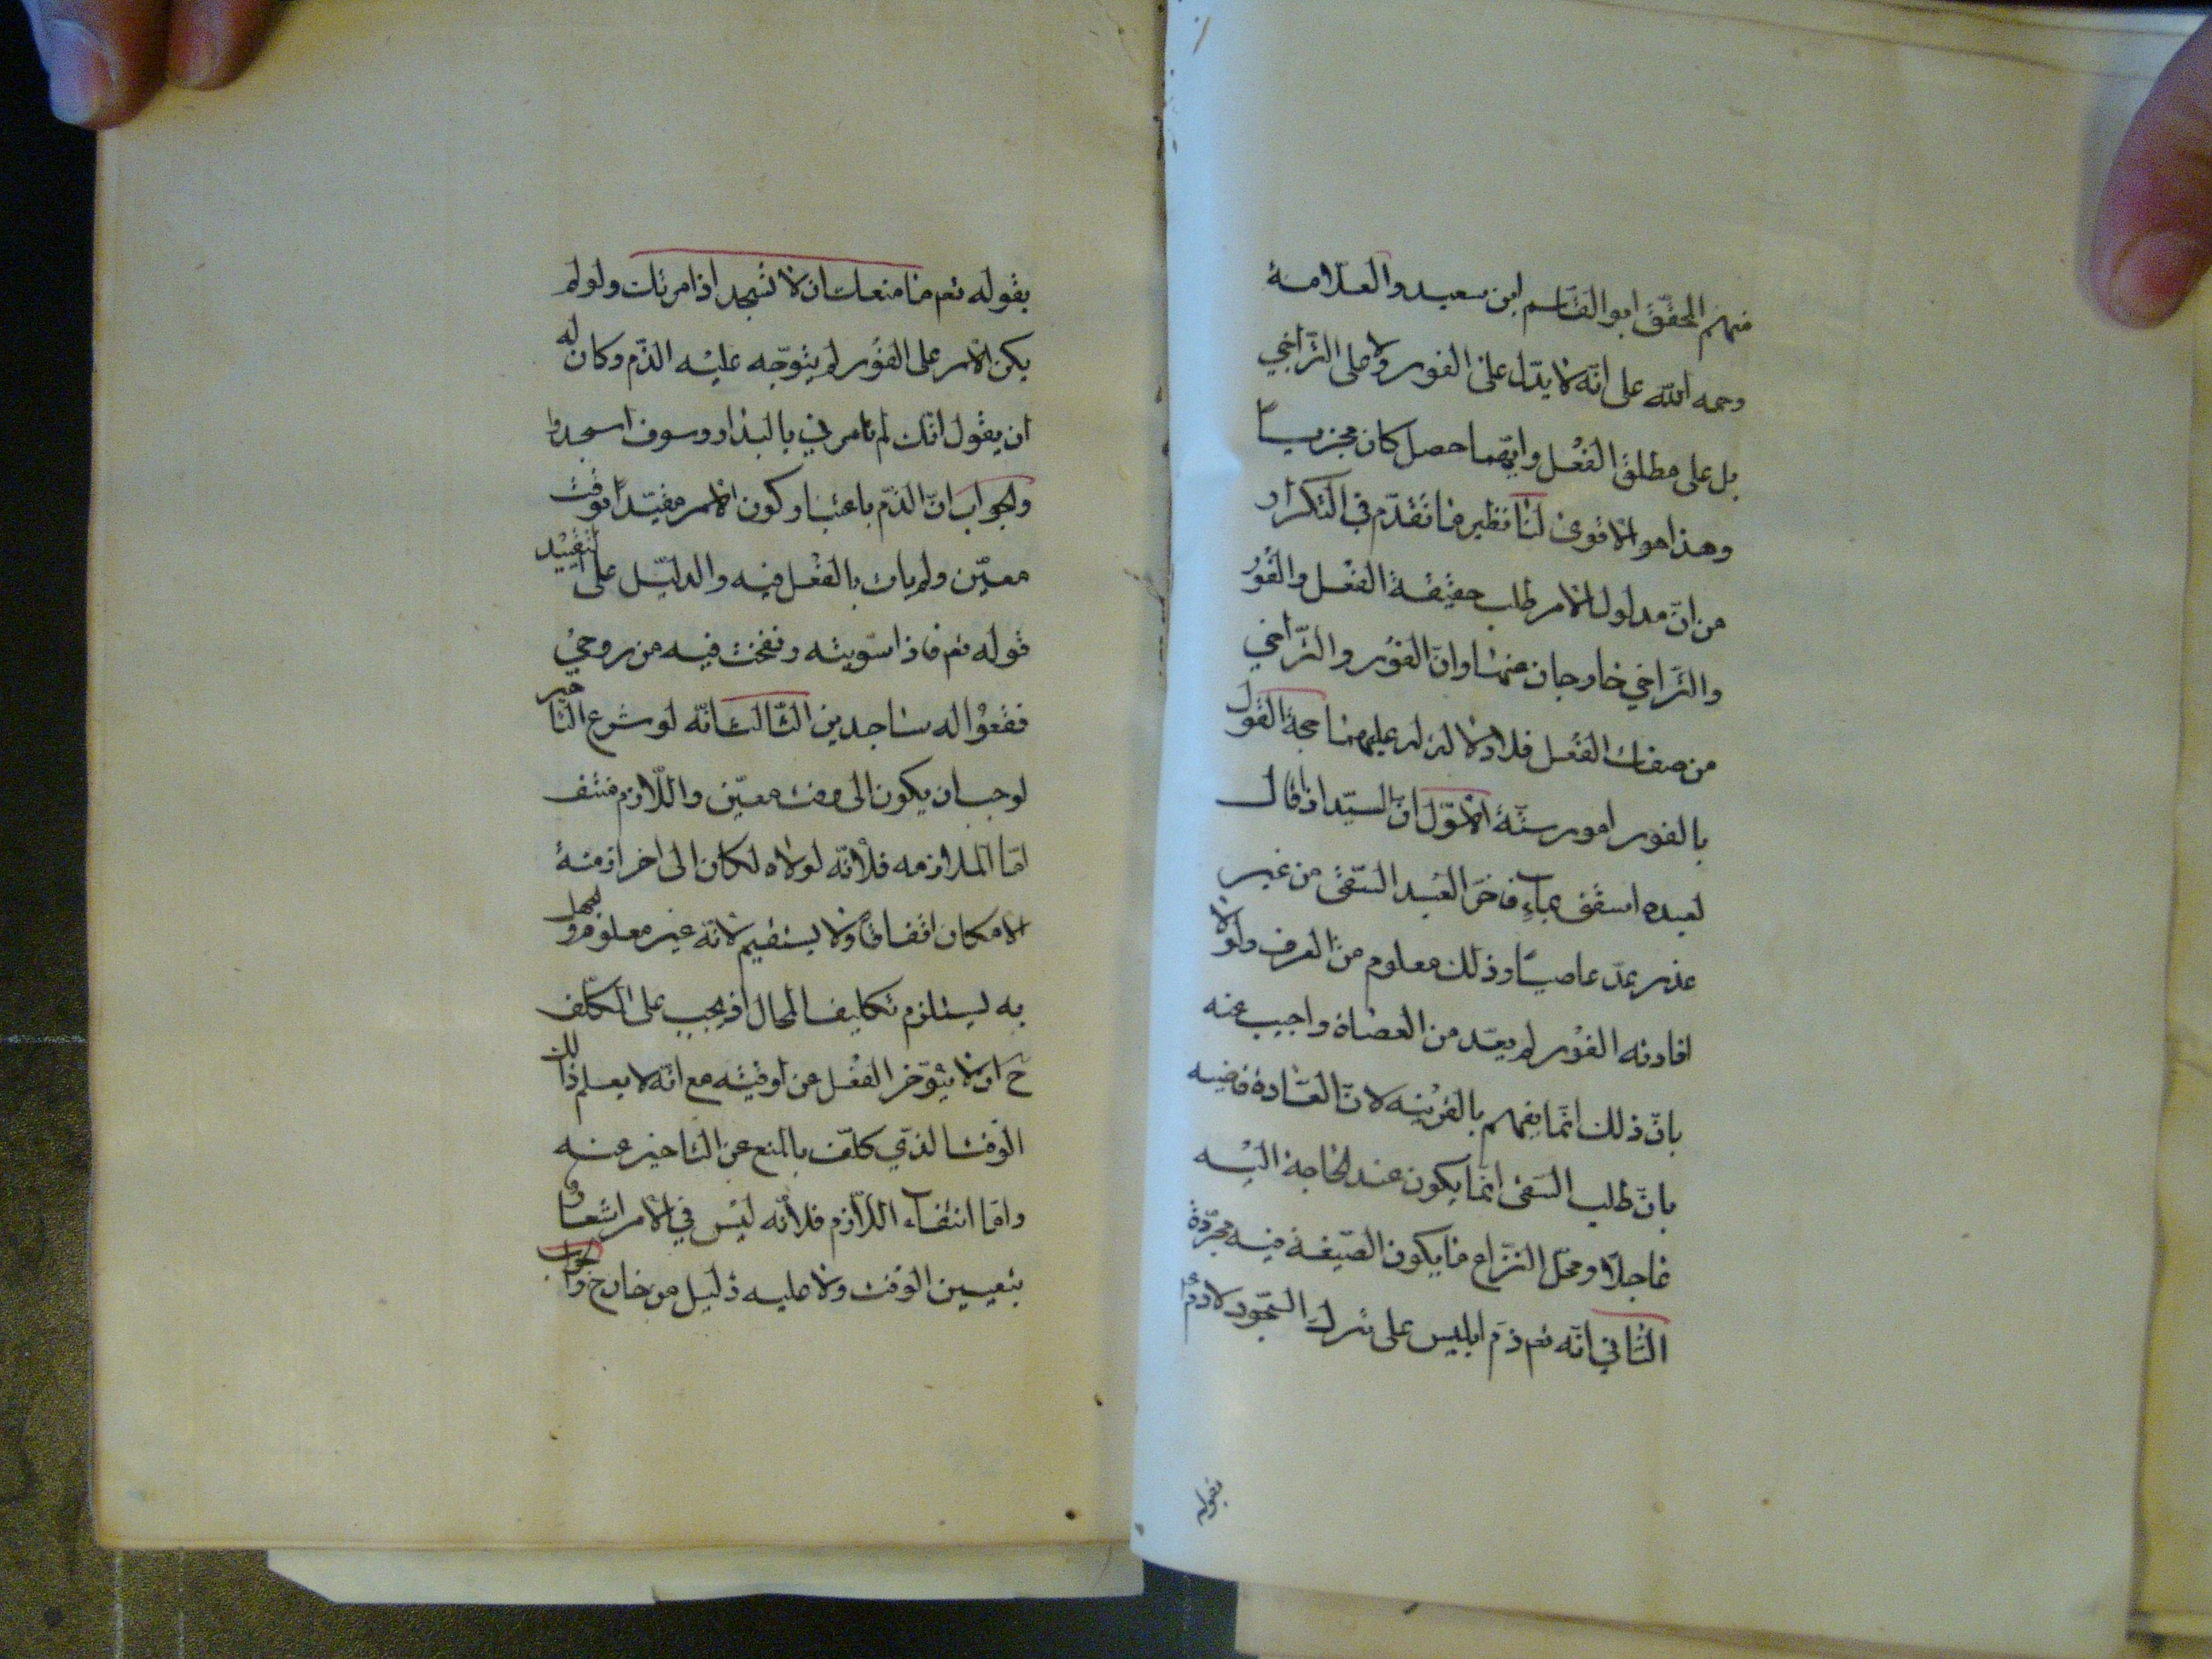 منهم المحقّق ابو القاسم ابن سعيد والعلّامة
رحمه الله على انّه لا يدّل على الفور ولا على التّراخي
بل على مطلق الفعل وايّهما حصل كان مجزيا
وهذا هو الاقوى لنا نظير ما تقدّم في التكرار
من انّ مدلول الامر طلب حقيقة الفعل والفور
والتّراخي خارجان عنها وانّ الفور والتّراخي
من صفات الفعل فلا دلالة له عليهما حجة القول
بالفور امور ستّة الاوّل انّ السيّد اذا قال
لعبده اسقنى بماء فاخر العبد السّقى من غير
عذر يعدّ عاصيا وذلك معلوم من العرف ولولا
افادته الفور لم يعد من العصاة واجيب عنه
بانّ ذلك انّما يفهم بالقرينه لانّ العادة قاضيه
بانّ طلب السّقى انّما يكون عند الحاجة اليه
عاجلا ومحل النزاع ما يكون الصّيغة فيه مجرّدة
الثاني انّه تعم ذمّ ابليس على ترك السّجود لادم ع
بقوله
بقوله تعم ما منعك ان لا تسجد اذ امرتك ولو لم
يكن الامر على الفور لم يتوجّه عليه الذّم وكان له
ان يقول انّك لم تامرني بالبدار وسوف اسجد
والجواب انّ الذّم باعتبار كون الامر مقيّدا بوقت
معيّن ولم يات بالفعل فيه والدليل على التقييد
قوله تعم فاذا سوّيته ونفخت فيه من روحي
فقعوا له ساجدين الثّالث انّه لو شرع التاخير
لوجب ان يكون الى وقت معيّن واللّازم منتف
امّا الملازمه فلانّه لولاه لكان الى اخر ازمنة
الامكان اتفاقا ولا يستقيم لانّه غير معلوم والجهل
به يستلزم تكليف المحال اذ يجب على المكلّف
ح ان لا يؤخّر الفعل عن وقته مع انّه لا يعلم ذلك
الوقت الذّي كلّف بالمنع عن التاخير عنه
وامّا انتفاء اللّازم فلانّه ليس في الامر اشعار
بتعيين الوقت ولا عليه دليل من خارج والجواب